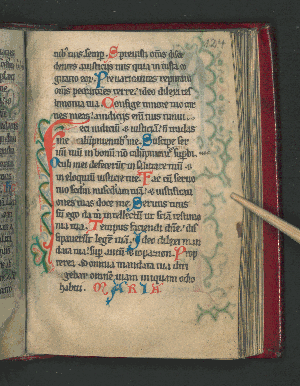 124
tuis semp. Spreuisti om̅s disce
dentes a iusticiis tuis quia iniusta co
gitatio eoꝝ. Preuaricantes reputaui
om̅s peccatores terre: ideo dilexi tes
timonia tua. Confige timore tuo car
nes meas: a iudiciis eni̅ tuis timui.
Feci iudiciu̅ & iusticia̅: n̅ tradas
me calumpniantib' me. Suscipe ser
uu̅ tuu̅ in bonu̅: n̅ calumpnient̅ supbi.
Oculi mei defecerunt in salutare tuu̅: &
in eloquiu̅ iusticie tue. Fac cu̅ seruo
tuo scd̅m mia̅m tua̅: & iustificati
ones tuas doce me. Seruus tuus
su̅ ego da m̅ intellectu̅ ut scia̅ testimo
nia tua. Tempus faciendi dn̅e: dis
sipauerunt lege̅ tua̅. Ideo dilexi man
data tua: sup auru̅ & topazion. Prop
terea ad omnia mandata tua diri
gebar omne̅ uiam iniquam odio
habui. MARIA